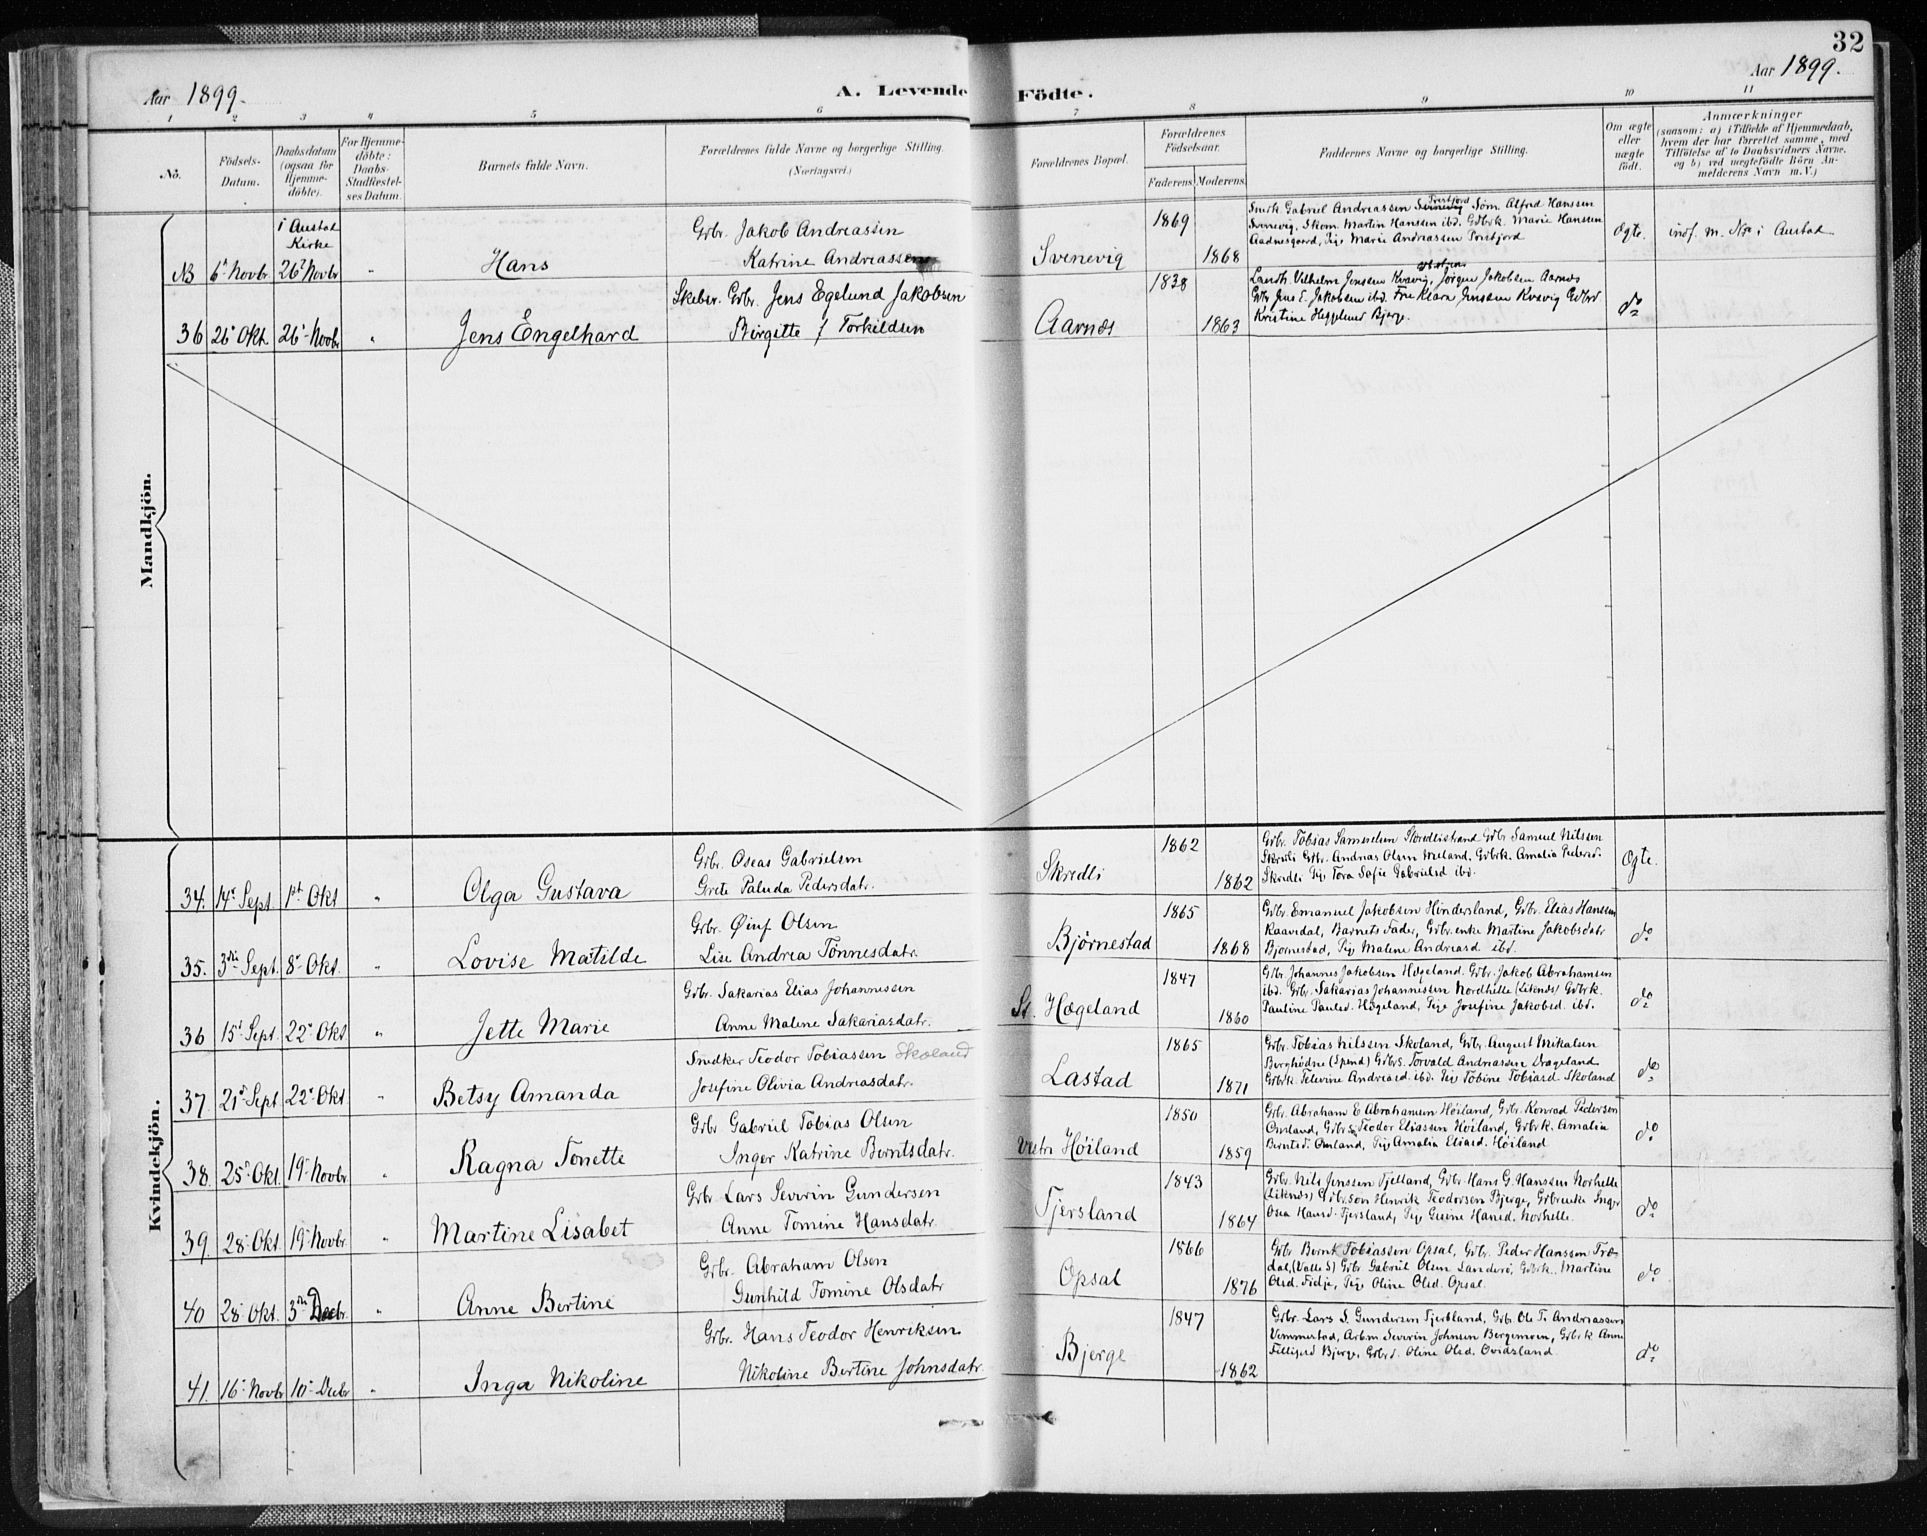 32
Aar 1899.
A. Levende Födte.
Aar 1899.
1 2 3 4 5 6 7 8 9 10 11
No.
Födsels-Datum.
Daabsdatum (ogsaa for Hjemmedöbte).
For Hjemmedöbte: Daabs-Stadfæstelses Datum.
Barnets fulde Navn.
Forældrenes fulde Navne og borgerlige Stilling. (Næringsvei.)
Forældrenes Bopæl.
Forældrenes Födselsaar.
Faderens. Moderens.
Faddernes Navne og borgerlige Stilling.
Om ægte eller uægte födt.
Anmærkninger
(saasom: a) i Tilfælde af Hjemmedaab, hvem der har forrettet samme, med Tilföielse af to Daabsvidners Navne, og b) ved uægtefödte Börn Anmelderens Navn m. V.)
Mandkjön.
i Austad Kirke
NB 6t Novbr 26t Novbr " Hans
Gbr. Jakob Andreassen
Katrine Andreassen
Svenevig 1869 1868
Snedk. Gabriel Andreassen Trestjord Svenevig Söm. Alfred Hanssen
Svenevig, Skom. Martin Hanssen ibd. Gdbrk. Marie Hanssen
Aadnesgaard, Pige Marie Andreassen
Ægte. indf. m. No i Austad
36 26t Okt. 26t Novbr " Jens Engelhard
Skibsr. Gbr. Jens Egelund Jakobsen
Birgitte f Torkildsen
Aarnes 1838 1863
Landh. Vilhelm Jenssen Kvavig, Jörgen Jakobsen Aarnes
Gbr Jens E. Jakobsen ibd. Fru Klara Jenssen Kvavig
Kristine Bjerge.
do
Kvindekjön.
34. 14t Sept. 1st Okt " Olga Gustava
Gbr. Oseas Gabrielsen
Grete Paluda Pedersdatr.
Skredli 1862 1862
Gbr. Tobias Samuelsen Skredlistrand Gbr Samuel Nilssen
Skredli Gbr. Andreas Olsen Meland, Gdbrk. Amalia Pedersd.
Skredli Pig Tora Sofie Gabrielsd ibd.
Ægte.
35. 3die Sept. 8t Okt. " Lovise Matilde
Gbr. Øiuf Olsen
Lise Andrea Tönnesdatr.
Bjørnestad 1865 1868
Gbr. Emanuel Jakobsen Hindersland, Gbr. Elias Hanssen
Raavdal, Barnets Fader, Gbr. enke Martine Jakobsdatr
Bjørnestad, Pig Malene Andreasd ibd.
do
36 15t Sept. 22t Okt " Jette Marie
Gbr. Sakarias Elias Johannessen
Anne Malene Sakariasdatr.
St. Hægeland 1847 1860
Gbr. Johannes Jakobsen Hægeland. Gbr. Jakob Abrahamsen
ibd. Gbr. Sakarias Johannessen Nordhelle (Liknes) Gdbrk.
Pauline Paulsd. Hægeland, Pige Josefine Jakobsd. ibd.
do
37 21t Sept 22t Okt " Betsy Amanda
Snedker Teodor Tobiassen Skoland
Josefine Olivia Andreasdatr.
Lastad 1865 1871
Gbr. Tobias Nilssen Skoland, Gbr. August Mikalsen
Berghödne (Spind) Gbrs. Torvald Andreassen Drageland
Gbrk. Televine Andreasd. ibd. Pig Tobine Tobiasd. Skoland
do
38. 25t Okt. 19t Novbr. " Ragna Tonette
Gbr Gabriel Tobias Olsen
Inger Katrine Berntsdatr.
Vestr Höiland 1850 1859
Gbr. Abraham E Abrahamsen Höiland, Gbr. Konrad Pedersen
Omland, Gbrs Teodor Eliassen Höiland, Gbrk. Amalia
Berntsd. Omland, Pig Amalia Eliasd. Höiland
do
39. 28t Okt 19t Novbr. " Martine Lisabet
Gbr Lars Severin Gundersen
Anne Tomine Hansdatr.
Tjersland 1843 1864
Gbr. Nils Jenssen Fjelland, Gbr. Hans G. Hanssen Norhelle
(Liknes) Gbr.son Henrik Teodorsen Bjerge, Gbrenke Inger
Osea Hansd. Tjersland, Pig Gurine Hansd. Norhelle.
do
40 28t Okt. 3die Decbr. " Anne Bertine
Gbr. Abraham Olsen
Gunhild Tomine Olsdatr
Opsal 1866 1876
Gbr Bernt Tobiassen Opsal, Gbr. Peder Hanssen Træ-
dal, (Valle S) Gbr Gabriel Olsen Landerö, Gbrk. Martine
Olsd. Fidje, Pig Oline Olsd. Opsal.
do
41. 16t Novbr 10t Decbr " Inga Nikoline
Gbr. Hans Teodor Henriksen
Nikoline Bertine Johnsdatr.
Bjerge 1847 1862
Gbr. Lars S. Gundersen Tjersland, Gbr. Ole T. Andreassen
Vemmestad, Arbm Severin Johnsen Bergemoen, Gbrk Anne
Bjerge, Gbrd. Oline Olsd. Ovidsland.
do